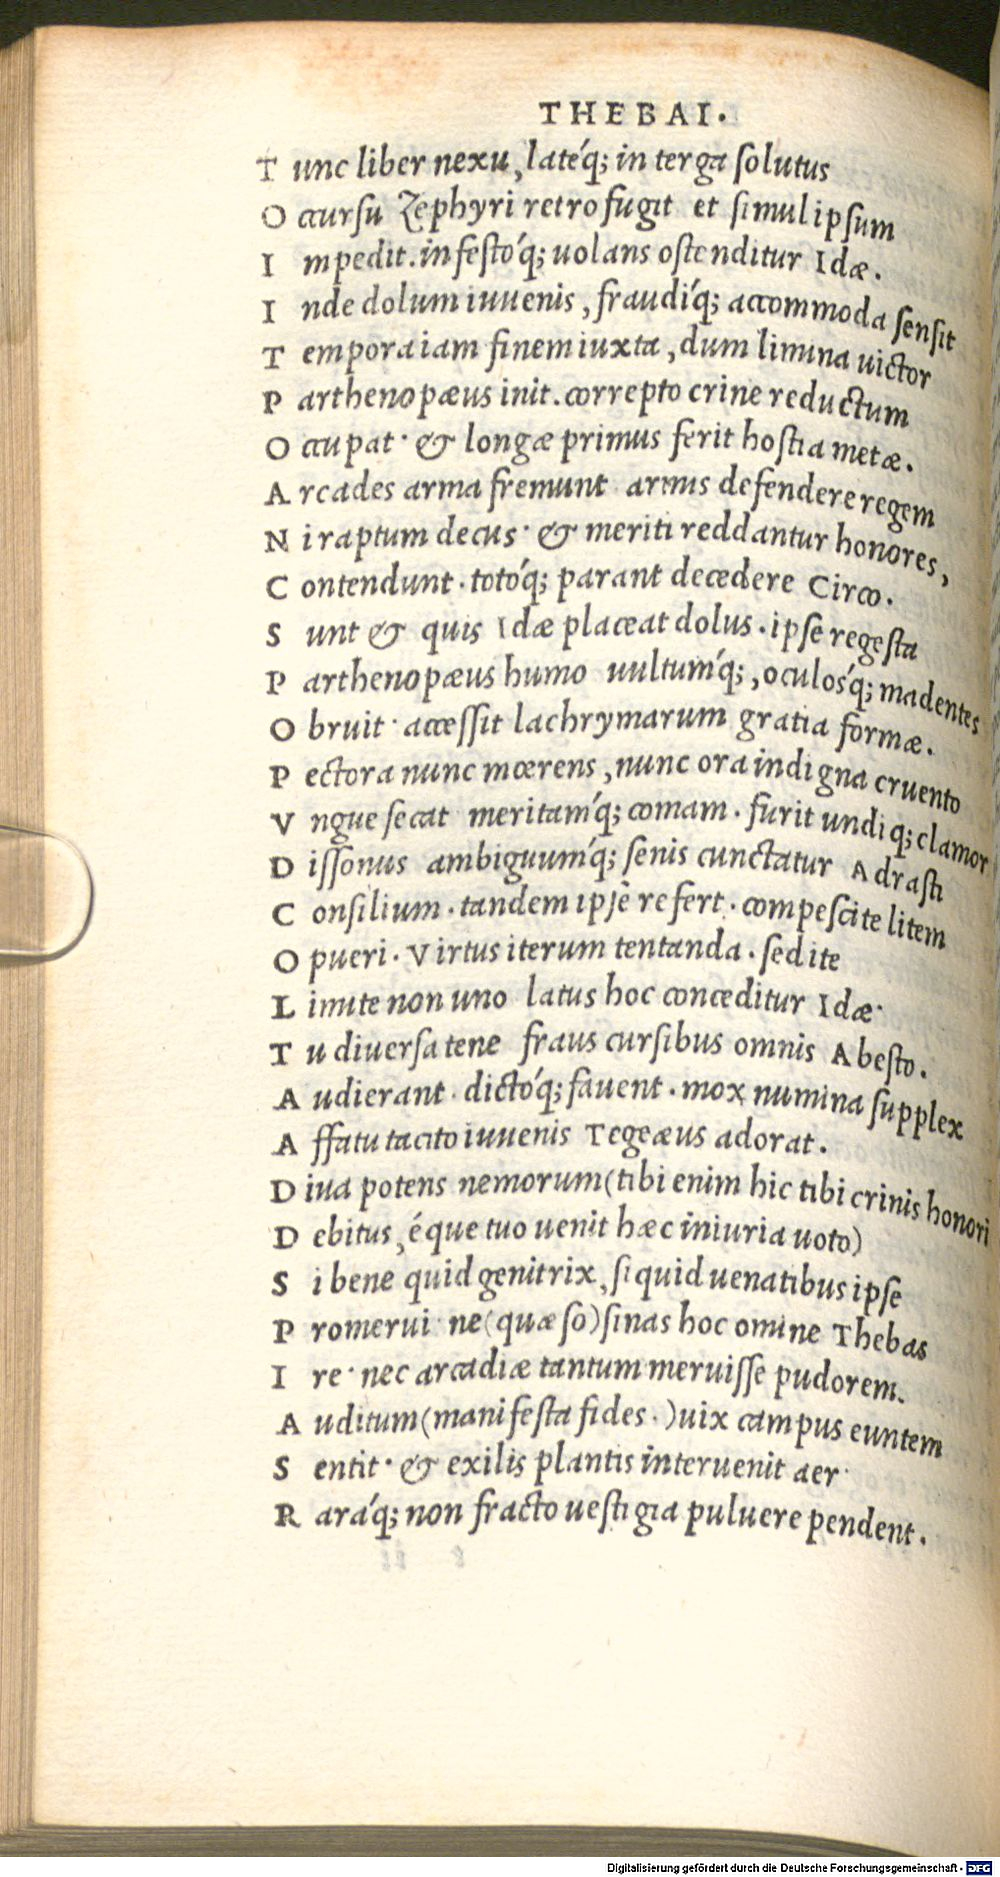 THEBAI.
Tunc liber nexu, latéq; in terga ſolutus
Occurſu Zephyri retro fugit et ſimul ipſum
Impedit. infeſtóq; uolans oſtenditur Idæ.
Inde dolum iuuenis, fraudíq; accommoda ſenſit
Tempora iam finem iuxta, dum limina uictor
Parthenopæus init. correpto crine reductum
Occupat· & longæ primus ferit hoſtia metæ.
Arcades arma fremunt armis defendere regem
Ni raptum decus· & meriti reddantur honores,
Contendunt· totóq; parant decedere Circo.
Sunt & quis Idæ placeat dolus. ipſe regeſta
Parthenopæus humo uultumq́;, oculosq́; madentes
Obruit· acceſſit lachrymarum gratia formæ.
Pectora nunc mœrens, nunc ora indigna cruento
Vngue ſecat meritamq́; comam. furit undiq; clamor
Diſſonus ambiguumq́; ſenis cunctatur Adraſti
Conſilium. tandem ipſe refert. compeſcite litem
O pueri. Virtus iterum tentanda. ſed ite
Limite non uno latus hoc conceditur Idæ·
Tu diuerſa tene fraus curſibus omnis Abeſto.
Audierant· dictóq; fauent. mox numina ſupplex
Affatu tacito iuuenis Tegeæus adorat.
Diua potens nemorum (tibi enim hic tibi crinis honori
Debitus, éque tuo uenit hæc iniuria uoto)
Si bene quid genitrix, ſi quid uenatibus ipſe
Promerui· ne (quæſo) ſinas hoc omine Thebas
Ire· nec arcadiæ tantum meruiſſe pudorem.
Auditum (manifeſta fides.) uix campus euntem
Sentit· & exilis plantis interuenit aer·
Raráq; non fracto ueſtigia puluere pendent.
Digitalisierung gefördert durch die Deutsche Forschungsgemeinschaft - DFG